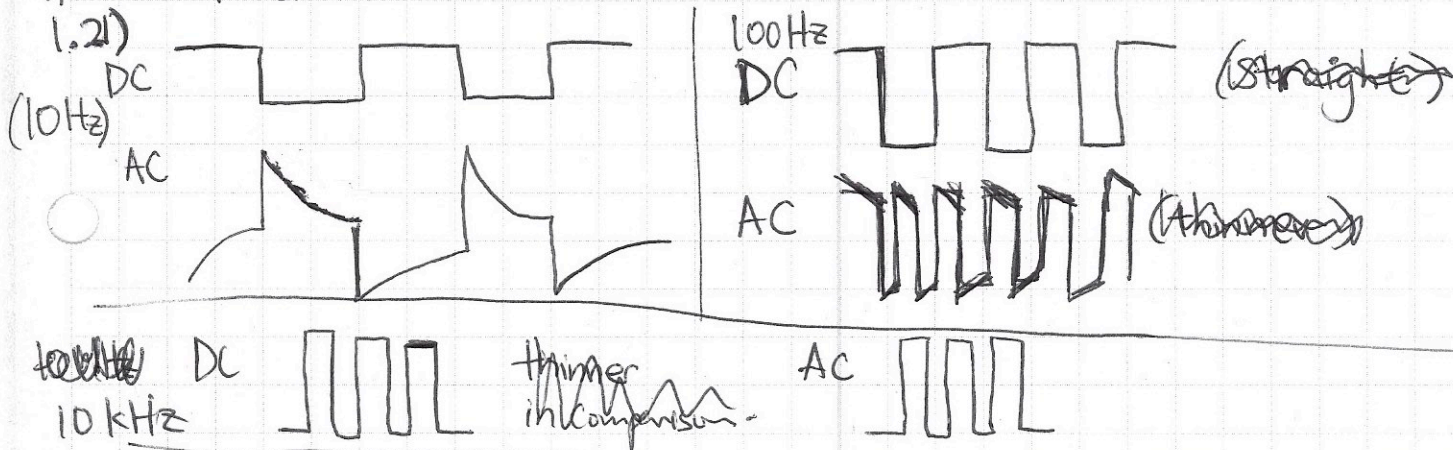 1.21)
DC
(10Hz)
AC
100Hz
DC
(Straight)
AC
(thinner)
10 kHz
DC
thinner
in comparison.
AC